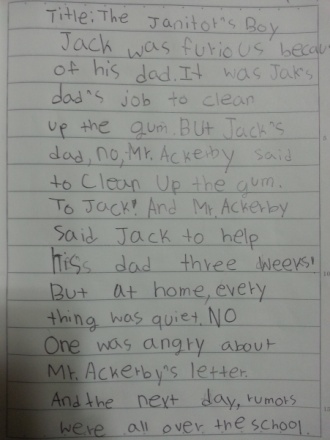 Title: The Janitor's Boy
Jack was furious becau
of his dad. It was Jaks
dad's job to clean
up the gum. But Jack's
dad, no, Mr. Ackerby said
to Clean Up the gum.
To Jack! And Mr. Ackerby
said Jack to help
hiss dad three weeks!
But at home, every
thing was quiet. NO
One was angry about
Mr. Ackerby's letter.
And the next day, rumors
were all over the school.